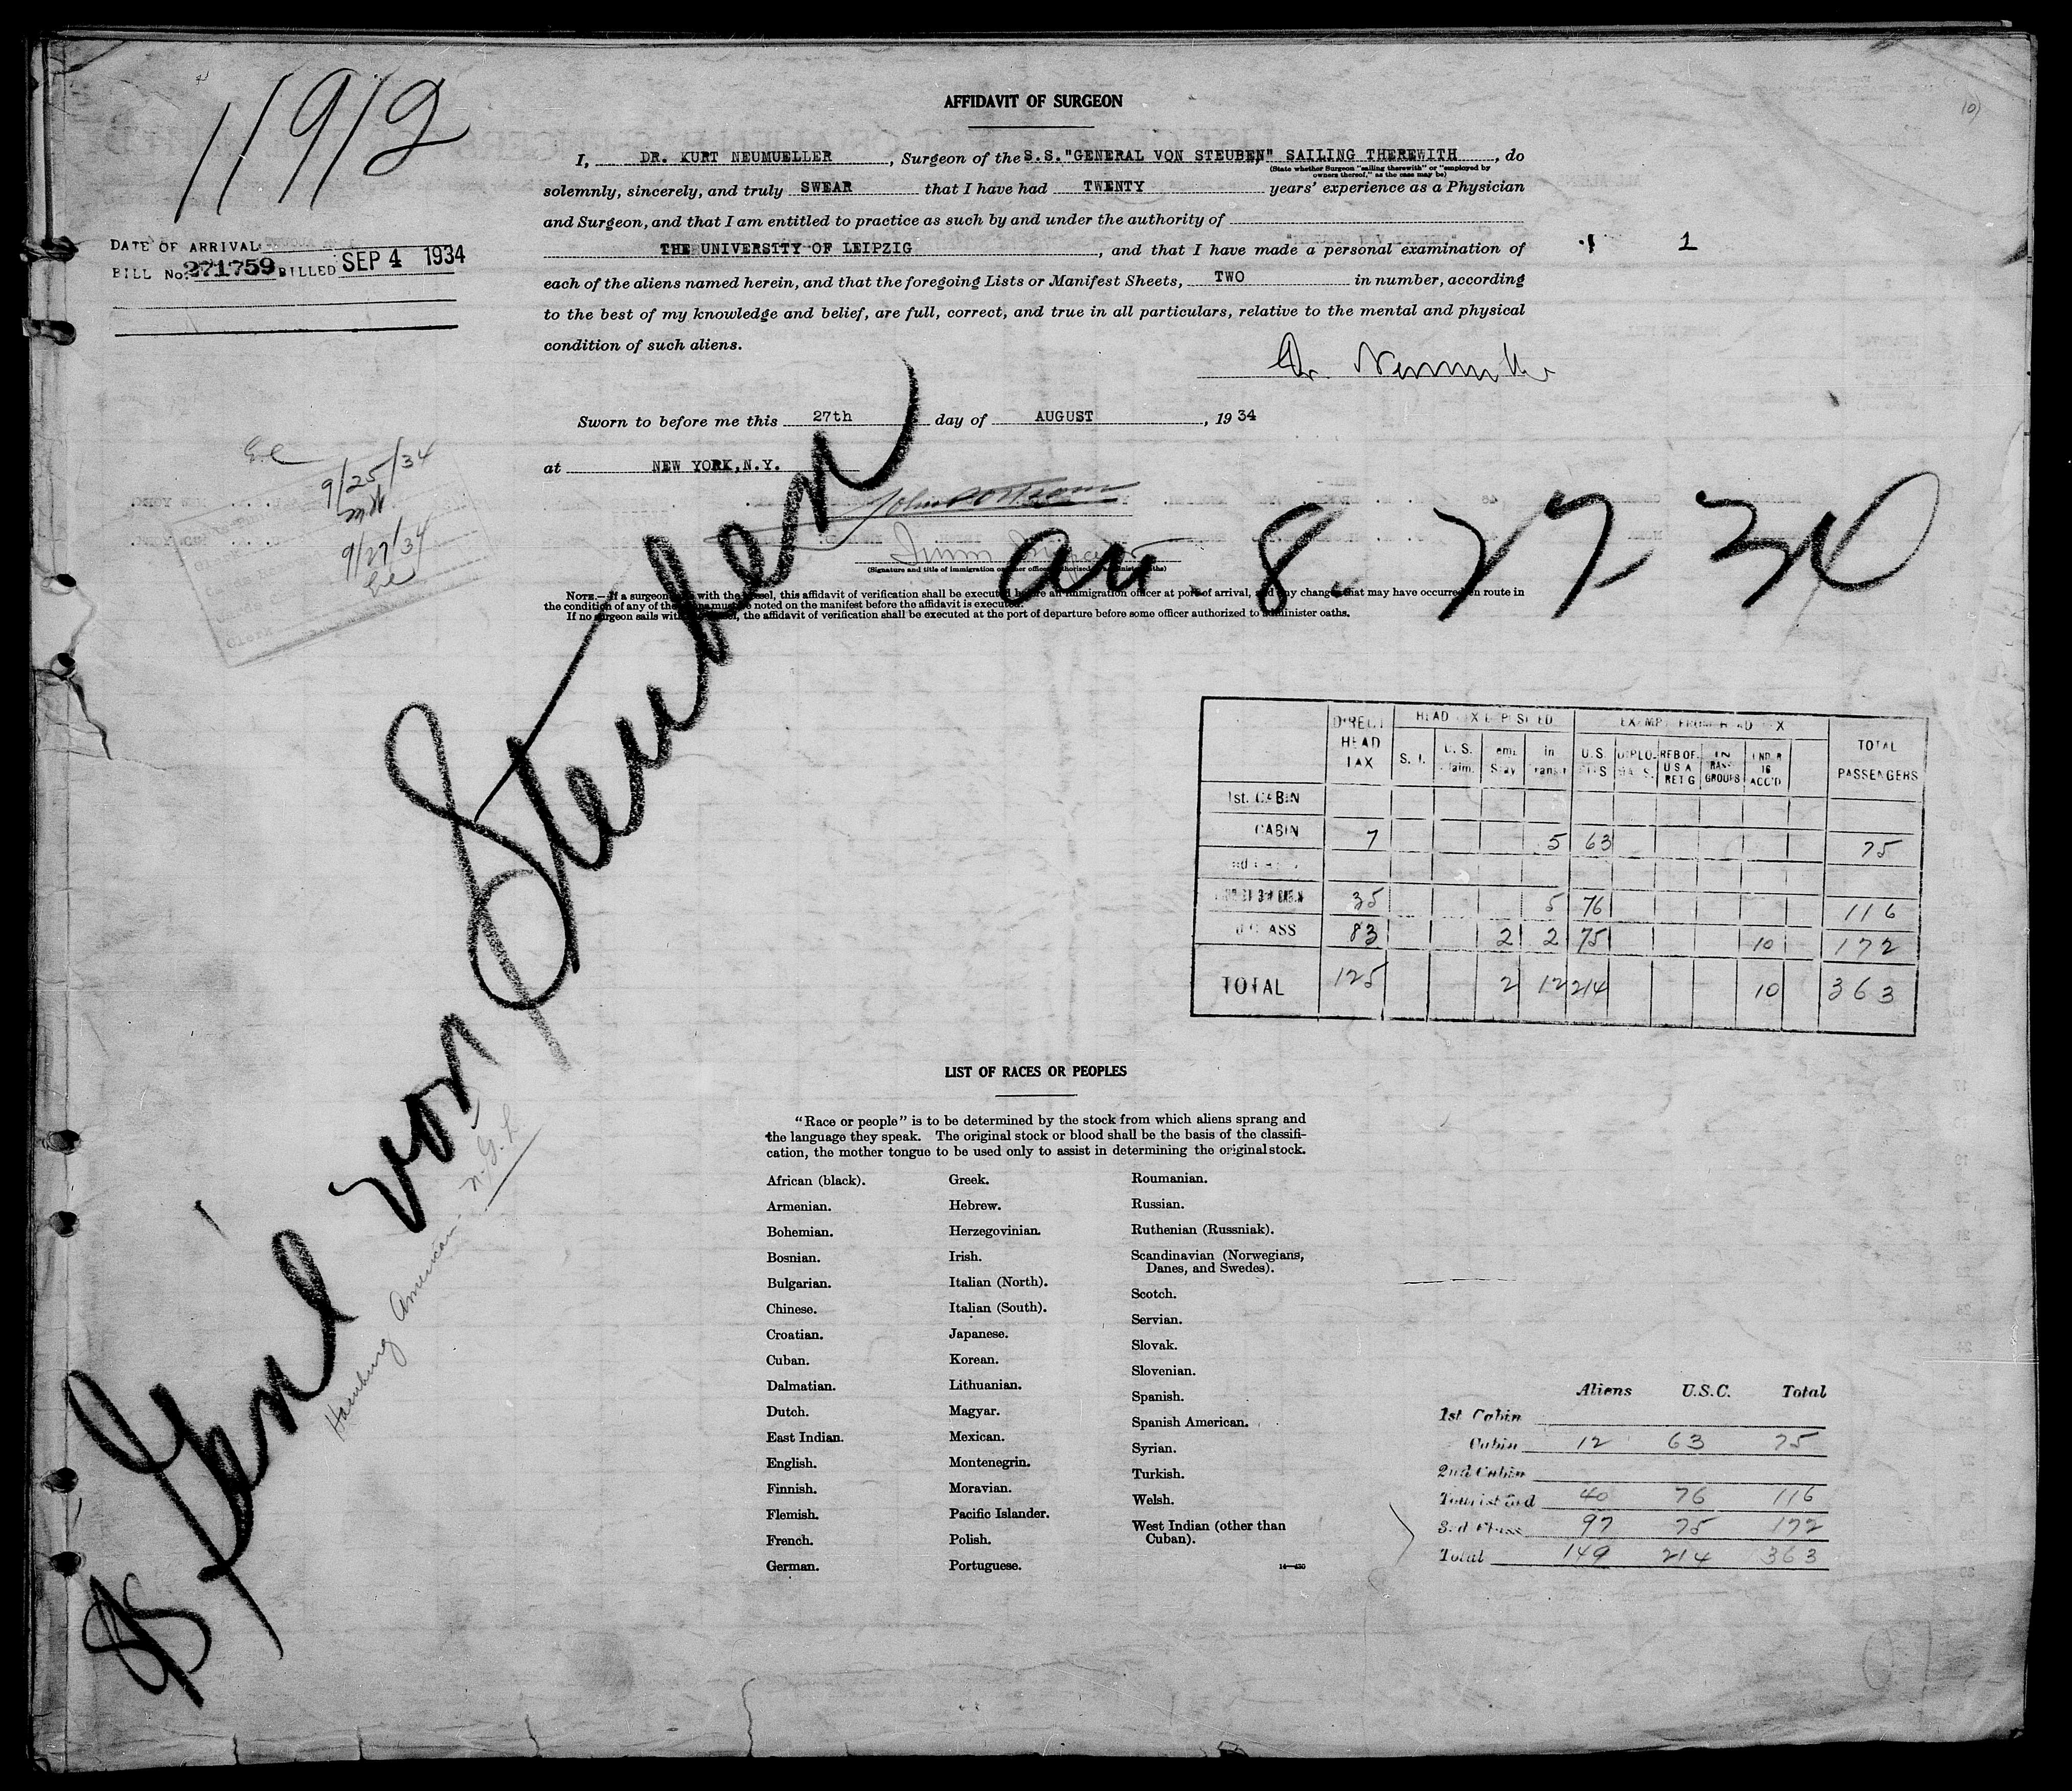 11912
AFFIDAVIT OF SURGEON
I, DR. KURT NEUMUELLER, Surgeon of the S.S."GENERAL VON STEUBEN" SAILING THEREWITH, do
(State whether Surgeon "sailing therewith" or "employed by
owners thereof," as the case may be)
solemnly, sincerely, and truly SWEAR that I have had TWENTY years' experience as a Physician
and Surgeon, and that I am entitled to practice as such by and under the authority of
THE UNIVERSTTY OF LEIPZIG, and that I have made a personal examination of
each of the aliens named herein, and that the foregoing Lists or Manifest Sheets, TWO in number, according
to the best of my knowledge and belief, are full, correct, and true in all particulars, relative to the mental and physical
condition of such aliens.
1
DATE OF ARRIVAL
BILL No. 271759 BILLED SEP 4 1934
Dr. Neumueller
Sworn to before me this 27th day of AUGUST, 19 34
at NEW YORK, N.Y.
9/25/34
9/27/34
(Signature and title of immigration or other officer authorized to administer oaths)
arr 8. 27 34
NOTE.—If a surgeon sails with the vessel, this affidavit of verification shall be executed before an immigration officer at port of arrival, and any change that may have occurred en route in
the condition of any of the aliens must be noted on the manifest before the affidavit is executed.
If no surgeon sails with the vessel, the affidavit of verification shall be executed at the port of departure before some officer authorized to administer oaths.
SS Gen'l von Steuben
Hamburg American. N.G.L
DIRECT HEAD TAX
S. I.
U. S.
in
U.S.
REB OF U S A RET G
GROUPS
16 ACC'D
TOTAL PASSENGERS
1st. CABIN
CABIN 7 5 63 75
35 5 76 116
83 2 2 75 10 172
TOTAL 125 2 12 214 10 363
LIST OF RACES OR PEOPLES
"Race or people" is to be determined by the stock from which aliens sprang and
the language they speak. The original stock or blood shall be the basis of the classifi-
cation, the mother tongue to be used only to assist in determining the original stock.
African (black).
Armenian.
Bohemian.
Bosnian.
Bulgarian.
Chinese.
Croatian.
Cuban.
Dalmatian.
Dutch.
East Indian.
English.
Finnish.
Flemish.
French.
German.
Greek.
Hebrew.
Herzegovinian.
Irish.
Italian (North).
Italian (South).
Japanese.
Korean.
Lithuanian.
Magyar.
Mexican.
Montenegrin.
Moravian.
Pacific Islander.
Polish.
Portuguese.
Roumanian.
Russian.
Ruthenian (Russniak).
Scandinavian (Norwegians,
Danes, and Swedes).
Scotch.
Servian.
Slovak.
Slovenian.
Spanish.
Spanish American.
Syrian.
Turkish.
Welsh.
West Indian (other than
Cuban).
14—430
Aliens U.S.C. Total
1st Cabin
Cabin 12 63 75
2nd Cabin
Tourist 3rd 40 76 116
3rd Class 97 75 172
Total 149 214 363